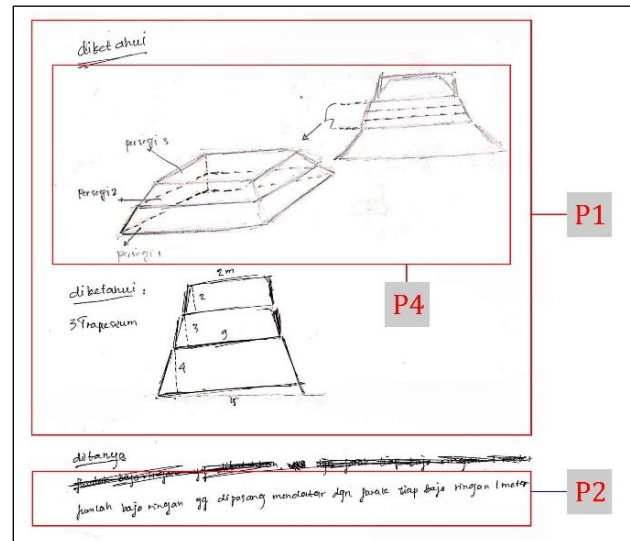 diketahui
persegi 3
persegi 2
persegi 1
P1
P4
diketahui :
3 Trapesium
2m
2
3
9
4
15
ditanya
jumlah baja ringan yg dipasang mendatar dgn jarak tiap baja ringan 1 meter
P2